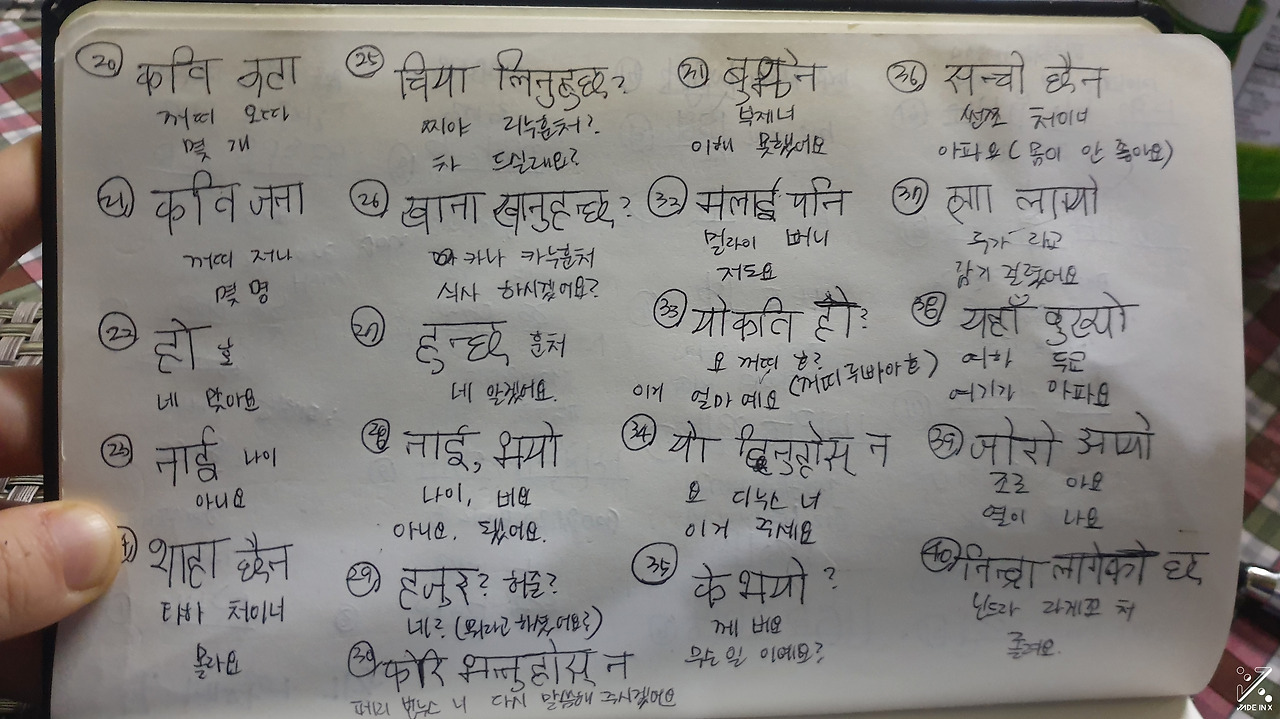 20 कति वटा
꺼띠 오따
몇 개
21 कति जना
꺼띠 저나
몇 명
22 हो 호
네 맞아요
23 नाई 나이
아니요
थाहा छैन
타하 처이너
몰라요
25 चिया लिनुहुन्छ?
찌야 리누훈처?
차 드실래요?
26 खाना खानुहुन्छ?
카나 카누훈처
식사 하시겠어요?
27 हुन्छ 훈처
네 알겠어요.
28 नाई, भयो
나이, 버요
아니요. 됐어요.
29 हजुर? 허줄?
네? (뭐라고 하셨어요?)
30 फेरि भन्नुहोस् न
페리 번누스 너 다시 말씀해 주시겠어요
31 बुझैन
부제너
이해 못했어요
32 मलाई पनि
멀라이 뻐니
저도요
33 यो कति हो?
요 꺼띠 호?
이게 얼마예요 (꺼띠 루빠야 호)
34 यो दिनुहोस् न
요 디누스 너
이거 주세요
35 के भयो?
께 버요
무슨일 이예요?
36 सन्चो छैन
썬쪼 처이너
아파요 (몸이 안 좋아요)
37 लाग्यो
루가 라교
감기 걸렸어요
38 यहाँ दुख्यो
여하 두교
여기가 아파요
39 जोरो आयो
조로 아요
열이 나요
40 निन्द्रा लागेको छ
닌드라 라게꼬 처
졸려요.
MADE IN X